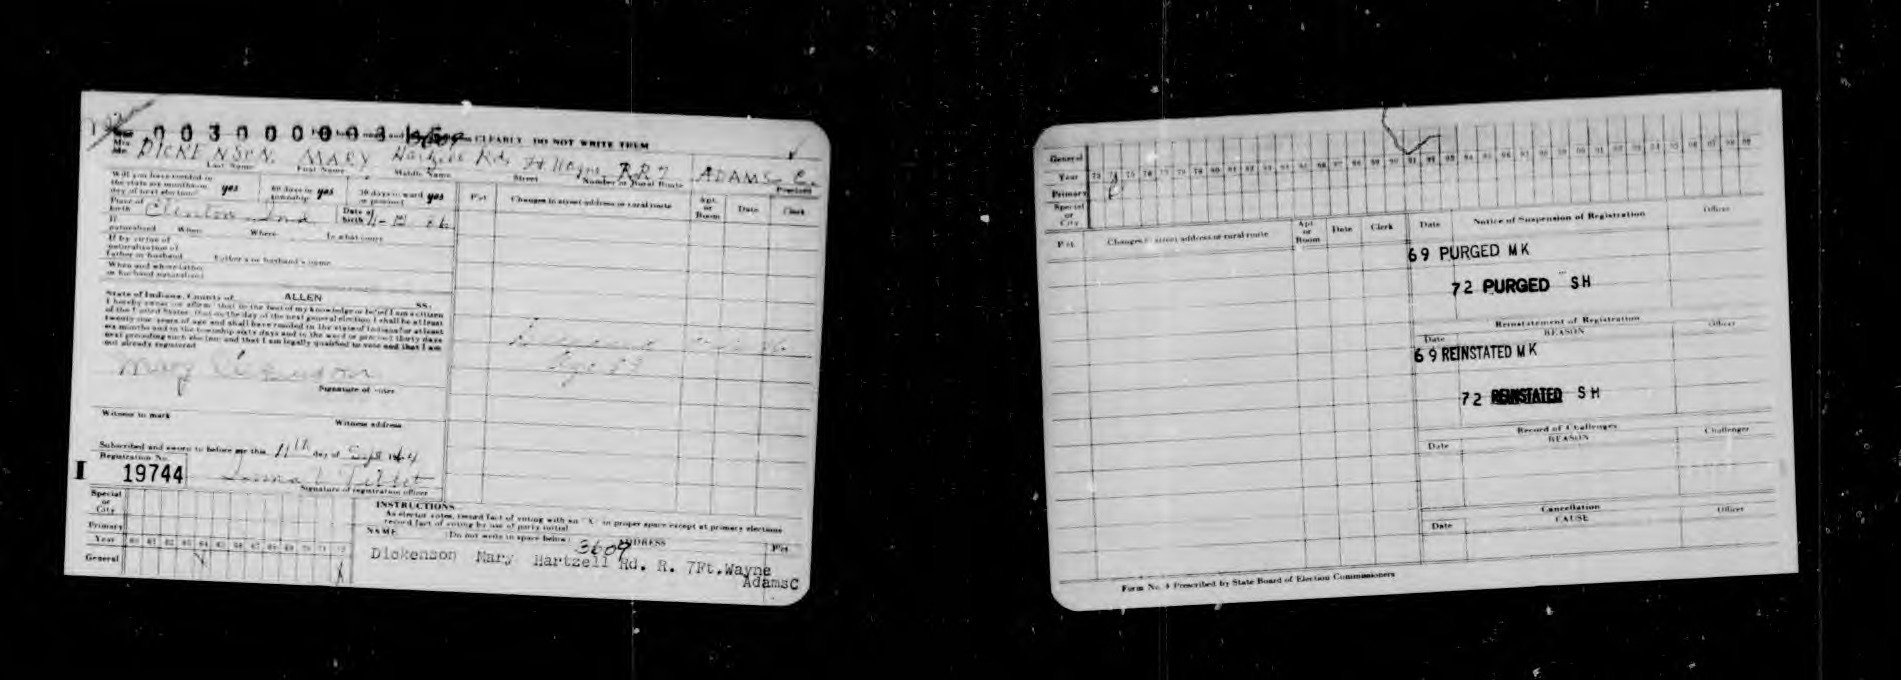 0030000031
CLEARLY DO NOT WRITE THEM
Mrs.
DICKENSON. MARY Hartzell Rd. Ft Wayne RR7 ADAMS C.
Last Name First Name Middle Name Street Number or Rural Route Precinct
Will you have resided in the state six months on day of next election? yes 60 days in township yes 30 days in ward or precinct yes
Pct. Changes in street address or rural route Apt. or Room Date Clerk
Place of birth Clinton Ind Date of birth
If naturalized When Where In what court
If by virtue of naturalization of Father or husband Father's or husband's name
When and where father or husband naturalized
State of Indiana, County of ALLEN SS:
I hereby swear (or affirm) that to the best of my knowledge or belief I am a citizen
of the United States, that on the day of the next general election I shall be at least
twenty-one years of age and shall have resided in the state of Indiana for at least
six months and in the township sixty days and in the ward or precinct thirty days
next preceding such election and that I am legally qualified to vote and that I am
not already registered
Mary Dickenson
Signature of voter
Age 88
Witness to mark Witness address
Subscribed and sworn to before me this 11th day of Sept 1964
Registration No.
I 19744
Signature of registration officer
Special or City
Primary
Year 60 61 62 63 64 65 66 67 68 69 70 71 72
General
INSTRUCTIONS
As elector votes, record fact of voting with an "X" in proper space except at primary elections
record fact of voting by use of party initial
NAME (Do not write in space below) ADDRESS Pct.
3609
Dickenson Mary Hartzell Rd. R. 7Ft.Wayne
AdamsC
General
Year 73 74 75 76 77 78 79 80 81 82 83
Primary
Special or City
Pct. Changes in street address or rural route Apt. or Room Date Clerk
Date Notice of Suspension of Registration Officer
69 PURGED MK
72 PURGED SH
Reinstatement of Registration
Date REASON Officer
69 REINSTATED MK
72 REINSTATED SH
Record of Challenges
Date REASON Challenger
Cancellation
Date CAUSE Officer
Form No. 4 Prescribed by State Board of Election Commissioners